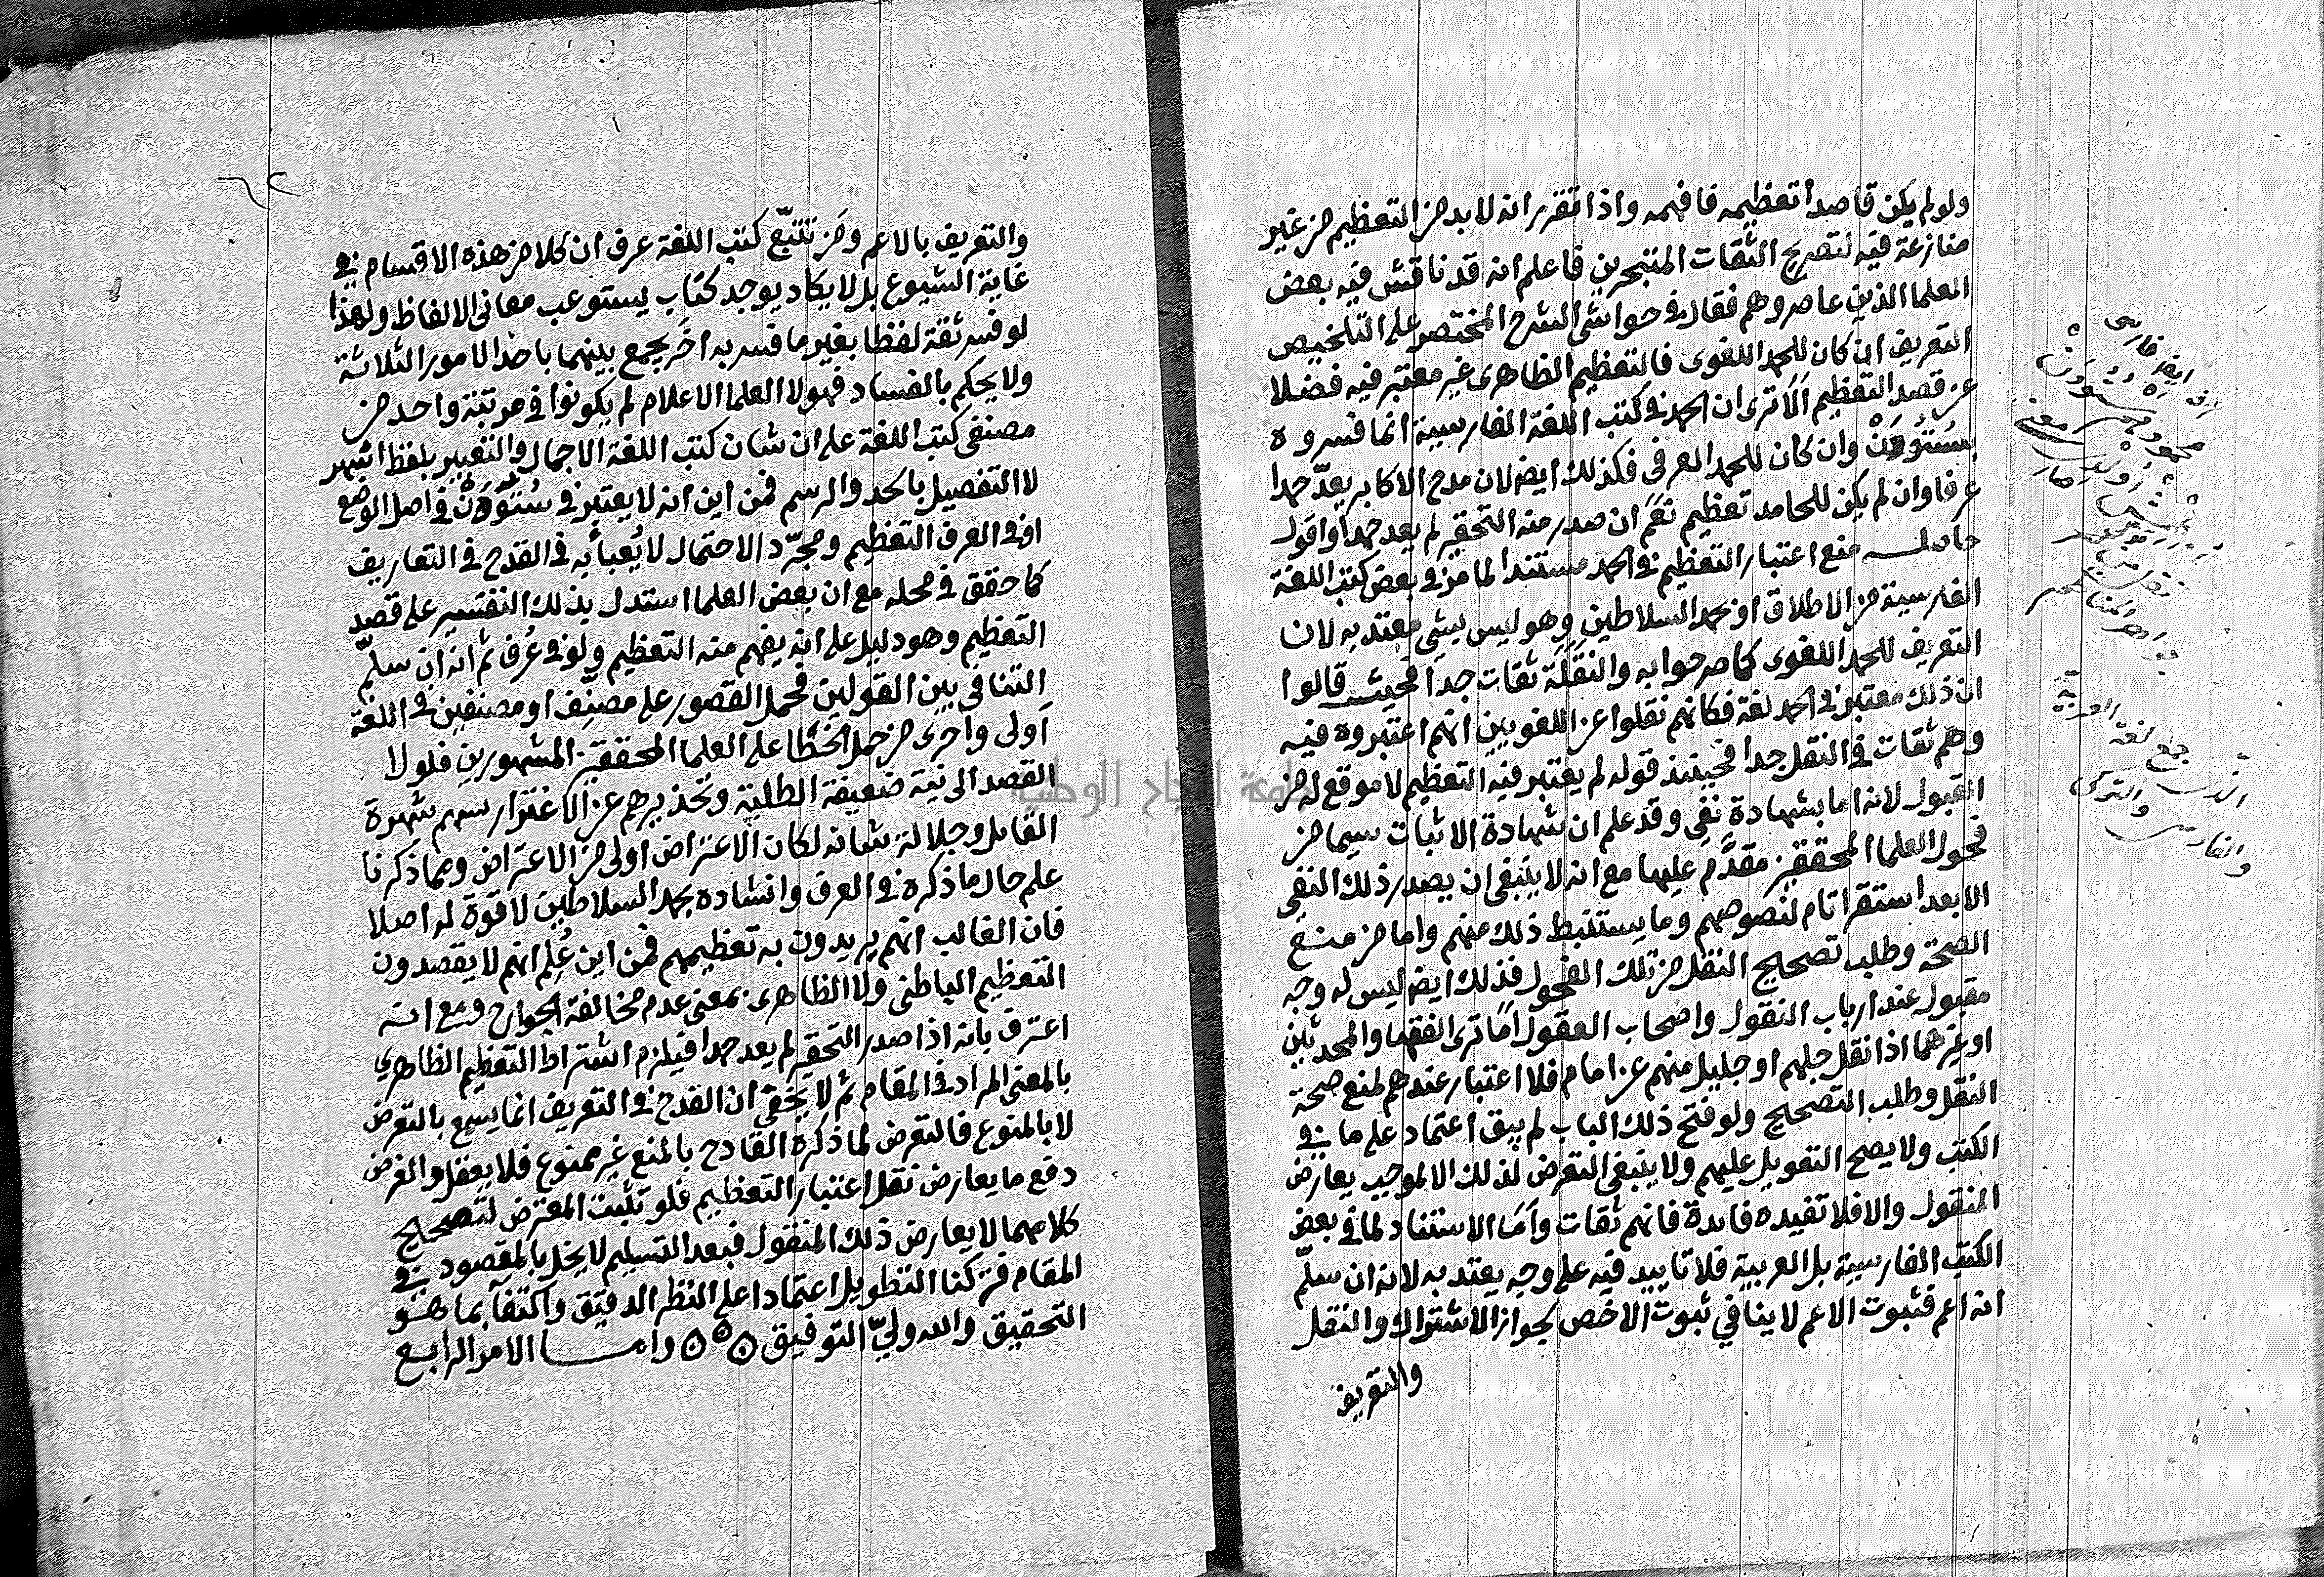 ولو لم يكن قاصدا تعظيمه فافهمه واذا تقرر انه لا بد من التعظيم من غير
منازعة فيه لتصريح الثقات المتبحرين فاعلم انه قد ناقش فيه بعض
العلما الذين عاصروهم فقال في حواشي الشرح المختصر على التلخيص
التعريف ان كان للحمد اللغوى فالتعظيم الظاهرى غير معتبر فيه فضلا
عن قصد التعظيم اَلَا ترى ان الحمد في كتب اللغة الفارسية انما فسروه
بستودن وان كان للحمد العرفى فكذلك ايضا لان مدح الاكابر يعدّ حمدا
عرفا وان لم يكن للحامد تعظيم نعَم ان صدر منه التحقير لم يعد حمدا واقول
حاصله منع اعتبار التعظيم في الحمد مستندا لما في بعض كتب اللغة
الفارسية من الاطلاق او بحمد السلاطين وهو ليس بشيء معتد به لان
التعريف للحمد اللغوى كما صرحوا به والنقلَة ثقات جدا فحيث قالوا
ان ذلك معتبر في الحمد لغة فكانهم نقلوا عن اللغويين انهم اعتبروه فيه
وهم ثقات في النقل جدا فحينئذ قوله لم يعتبر فيه التعظيم لا موقع له من
القبول لانه اما بشهادة نفى وقد علم ان شهادة الاثبات سيما من
فحول العلما المحققين مقدَّم عليها مع انه لا ينبغى ان يصدر ذلك النفى
الا بعد استقرا تام لنصوصهم وما يستنبط ذلك منهم واما من منع
الصحة وطلب تصحيح النقل من تلك الفحول فذلك ايضا ليس له وجه
مقبول عند ارباب النقول واصحاب العقول اما ترى الفقها والمحدثين
او غيرهما اذا نقل جلهم او جليل منهم عن امام فلا اعتبار عندهم لمنع صحة
النقل وطلب التصحيح ولو فتح ذلك الباب لم يبق اعتماد على ما في
الكتب ولا يصح التعويل عليهم ولا ينبغى التعرض لذلك الا لموجب يعارض
المنقول والا فلا تفيده فائدة فانهم ثقات وأمَا الاستناد لما في بعض
الكتب الفارسية بل العربية فلا تاييد فيه على وجه يعتد به لانه ان سلّم
انه اعم فثبوت الاعم لا ينافي ثبوت الاخص لجواز الاشتراك والنقل
والتعريف
جمع لغة العربية
والفارسي والتركي
٦٢
والتعريف بالاعم ومَن تتبّع كتب اللغة عرف ان كلا من هذه الاقسام في
غاية الشيوع بل لا يكاد يوجد كتاب يستوعب معانى الالفاظ ولهذا
لو فسر ثقة لفظا بغير ما فسر به اخَر يجمع بينهما باحد الامور الثلاثة
ولا يحكم بالفساد فهولا العلما الاعلام لم يكونوا في مرتبة واحد من
مصنفى كتب اللغة على ان شان كتب اللغة الاجمال والتعبير بلفظ اشهر
لا التفصيل بالحد والرسم فمن اين انه لا يعتبر في ستودن في اصل الوضع
او في العرف التعظيم ومجرّد الاحتمال لا يُعبأ به في القدح في التعاريف
كما حقق في محله مع ان بعض العلما استدل بذلك التفسير على قصد
التعظيم وهو دليل على انه يفهم منه التعظيم ولو في عُرف ثم انه ان سلِّم
التنافي بين القولين فحمل القصور على مصنِّف او مصنفين في اللغة
اَولى واحرى من حمل الخطا على العلما المحققين المشهورين فلولا
القصد الى نية ضعيفة الطلبة وتحذيرهم عن الاغترار باسهم شهرة
القائل وجلالة شانه لكان الاعراض اولى من الاعتراض ومما ذكرنا
علم حال ما ذكره في العرف وانشاده بحمد السلاطين لا قوة له اصلا
فان الغالب انهم يريدون به تعظيمهم فمن اين عُلِم انهم لا يقصدون
التعظيم الباطنى ولا الظاهرى بمعنى عدم مخالفة الجوارح ومع انه
اعترف بانه اذا صدر التحقير لم يعد حمدا فيلزم اشتراط التعظيم الظاهري
بالمعنى المراد في المقام ثم لا يخفى ان القدح في التعريف انما يسمع بالتعرض
لا بالمنوع فالتعرض لما ذكره القادح بالمنع غير ممنوع فلا يغفل والغرض
دفع ما يعارض نقل اعتبار التعظيم فلو تثبت المعترض لتصحيح
كلامهما لا يعارض ذلك المنقول فبعد التسليم لا يخل بالمقصود في
المقام فتركنا التطويل اعتمادا على النظر الدقيق واكتفآ بما هو
التحقيق والله وليّ التوفيق ٥ ٥ ٥ واما الامر الرابع